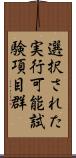 選択された
実行可能試
験項目群